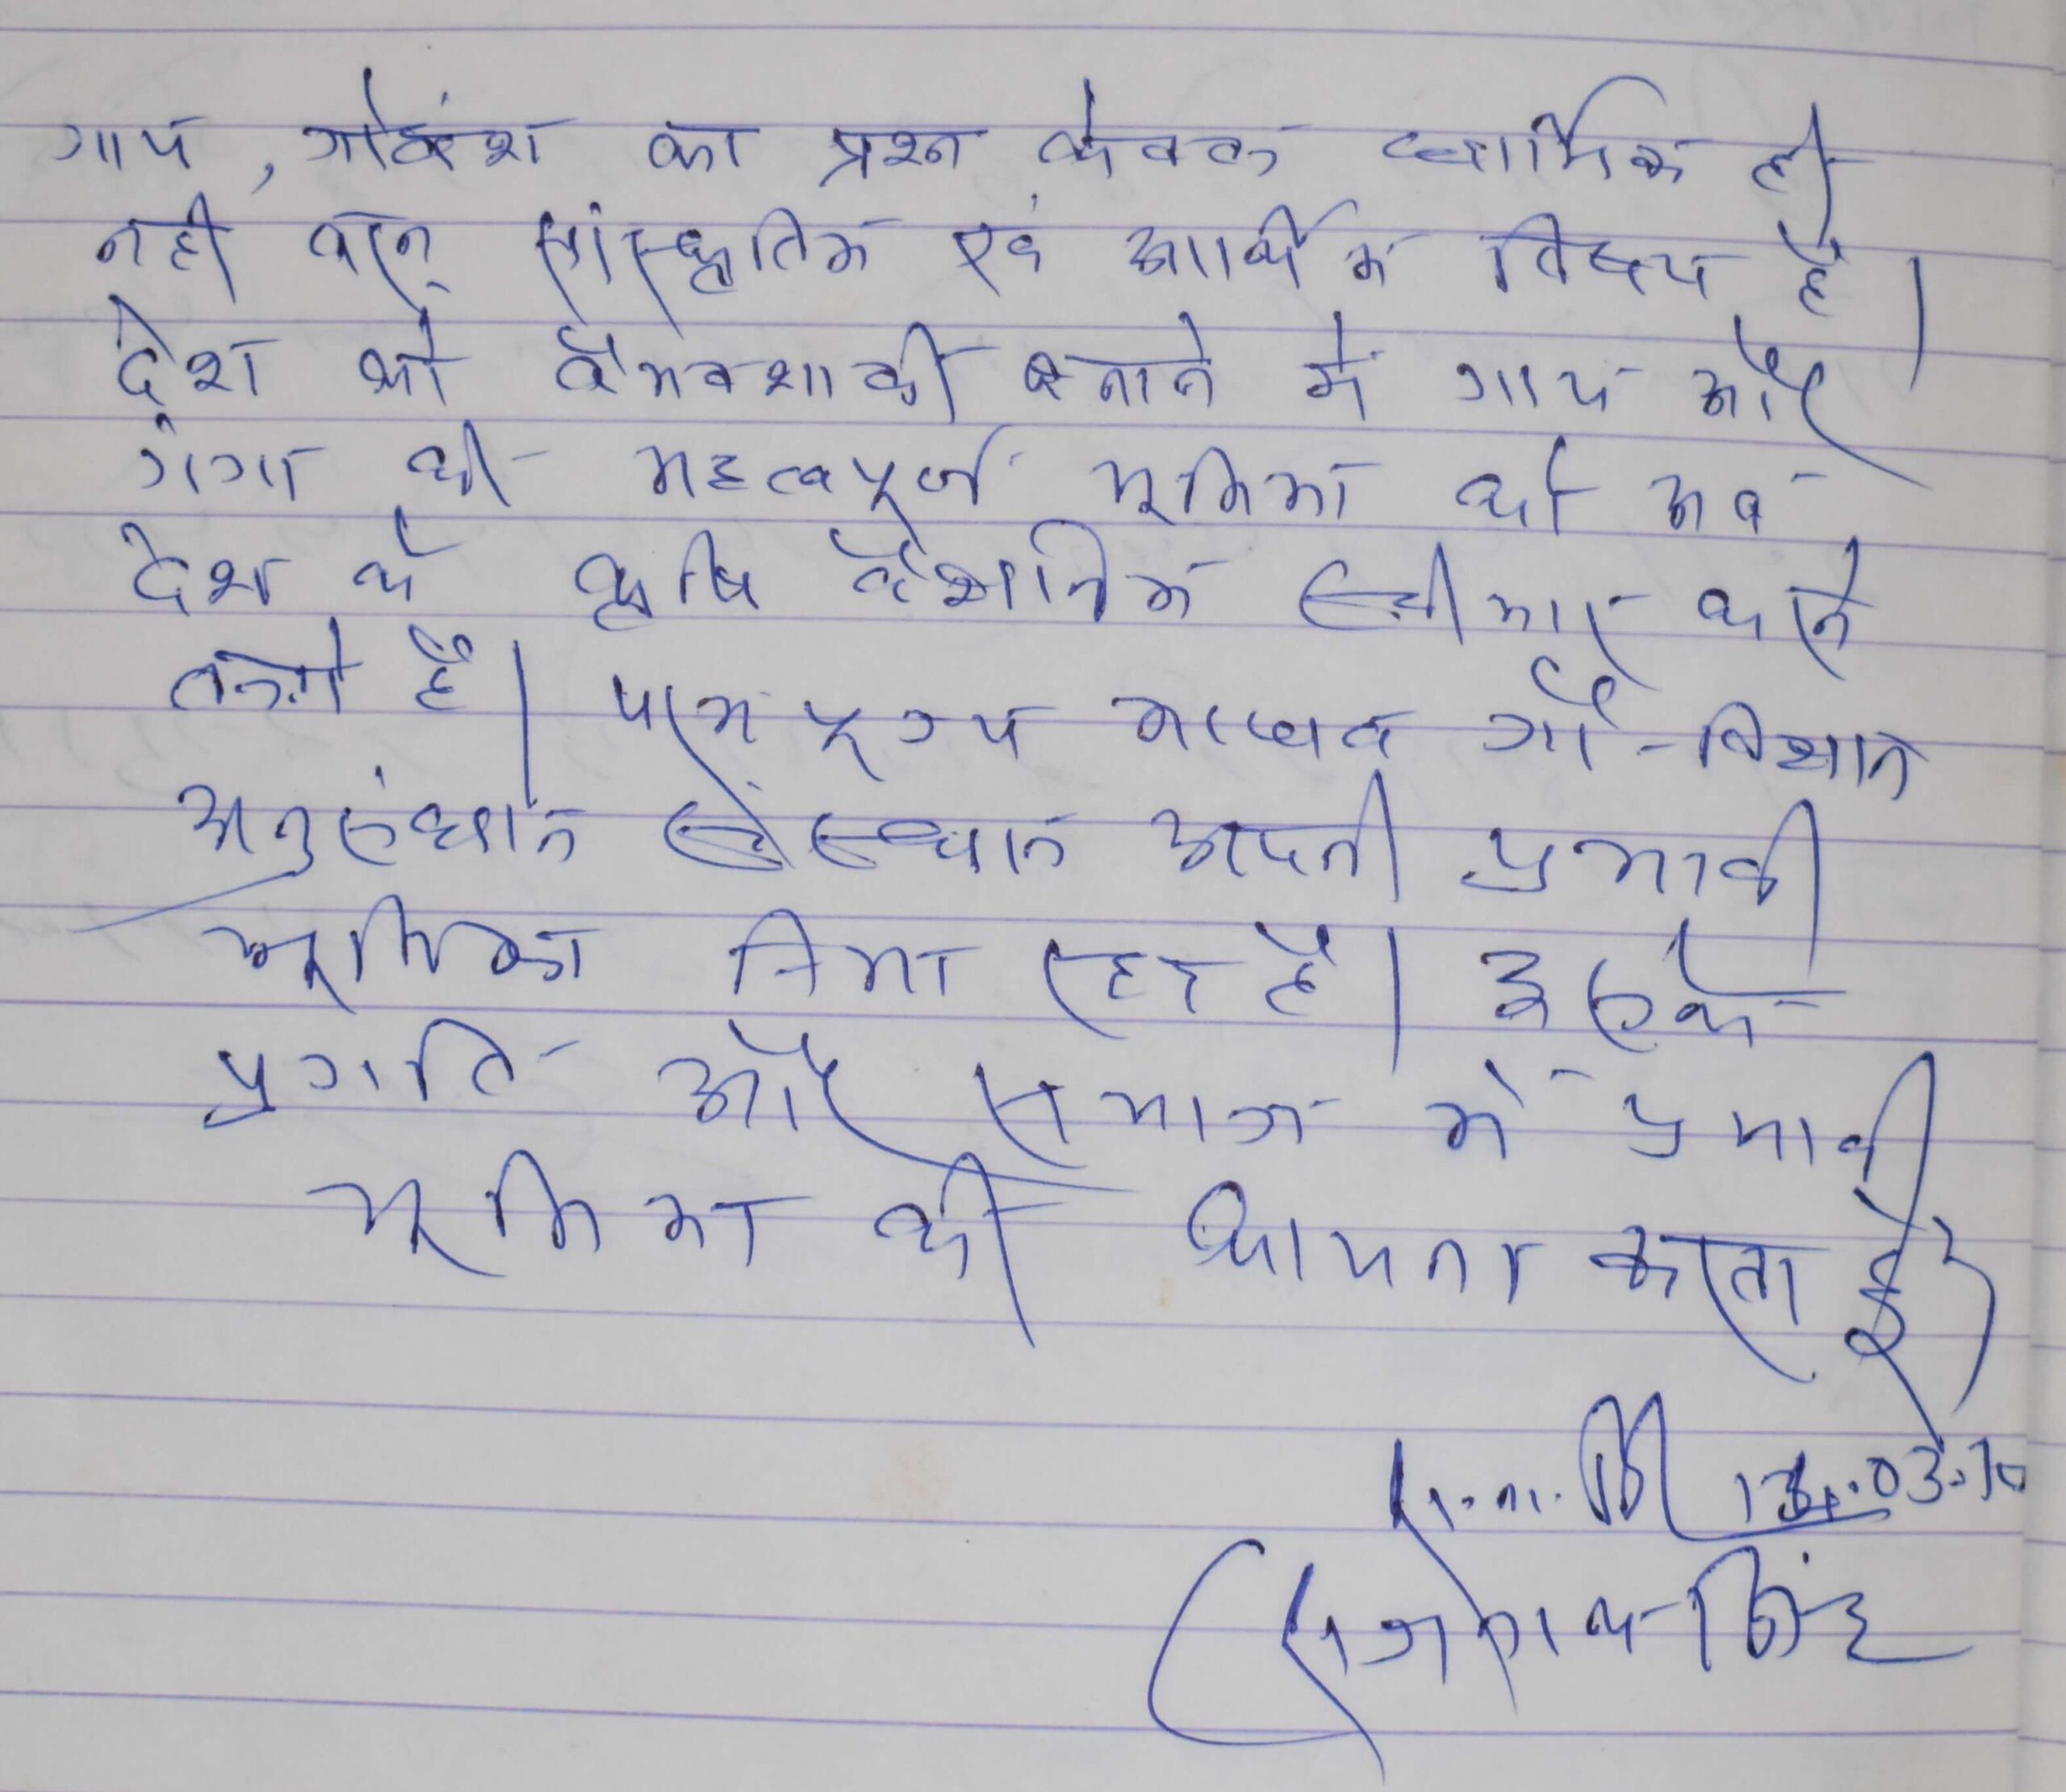 गाय, गोवंश का प्रश्न केवल धार्मिक ही
नही वरन् सांस्कृतिक एवं आर्थिक विषय है।
देश को वैभवशाली बनाने में गाय और
गंगा की महत्वपूर्ण भूमिका को अब
देश के कृषि वैज्ञानिक स्वीकार करने
लगे है। परम पूज्य माधव गौ-विज्ञान
अनुसंधान संस्थान अपनी प्रभावी
भूमिका निभा रहा है। इसके
प्रगति और समाज में प्रभावी
भूमिका की कामना करता हूँ
03.10